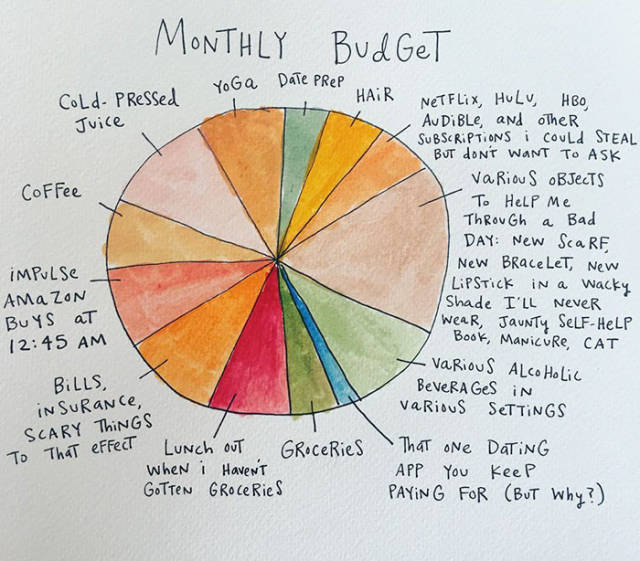 MONTHLY BUDGET
YOGA
DATE PREP
HAIR
COLD-PRESSED
JUICE
NETFLIX, HULU, HBO,
AUDIBLE, AND OTHER
SUBSCRIPTIONS I COULD STEAL
BUT DON'T WANT TO ASK
VARIOUS OBJECTS
TO HELP ME
THROUGH A BAD
DAY: NEW SCARF,
NEW BRACELET, NEW
LIPSTICK IN A WACKY
SHADE I'LL NEVER
WEAR, JAUNTY SELF-HELP
BOOK, MANICURE, CAT
COFFEE
IMPULSE
AMAZON
BUYS AT
12:45 AM
VARIOUS ALCOHOLIC
BEVERAGES IN
VARIOUS SETTINGS
BILLS,
INSURANCE,
SCARY THINGS
TO THAT EFFECT
LUNCH OUT
WHEN I HAVEN'T
GOTTEN GROCERIES
GROCERIES
THAT ONE DATING
APP YOU KEEP
PAYING FOR (BUT WHY?)